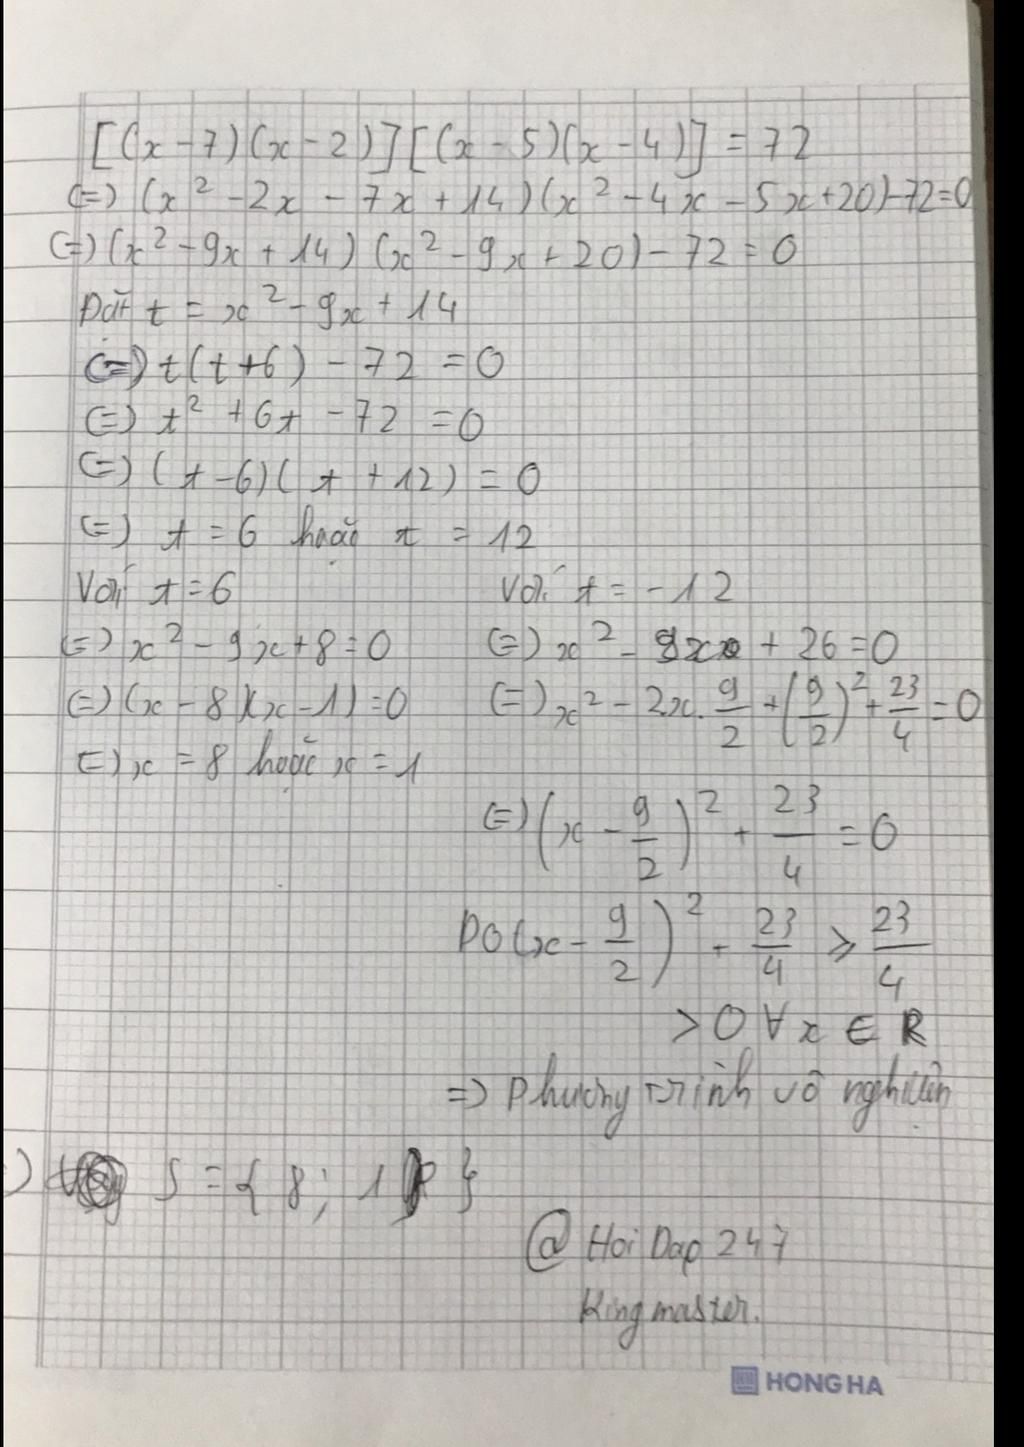 [(x-7)(x-2)][(x-5)(x-4)] = 72
(=) (x² - 2x - 7x + 14)(x² - 4x - 5x + 20) - 72 = 0
(=) (x² - 9x + 14) (x² - 9x + 20) - 72 = 0
Đặt t = x² - 9x + 14
(=) t(t+6) - 72 = 0
(=) t² + 6t - 72 = 0
(=) (t-6)(t+12) = 0
(=) t = 6 hoặc t = 12
Với t = 6
(=) x² - 9x + 8 = 0
(=) (x - 8)(x - 1) = 0
(=) x = 8 hoặc x = 1
Với t = -12
(=) x² - 9x + 26 = 0
(=) x² - 2x. 9/2 + (9/2)² + 23/4 = 0
(=) (x - 9/2)² + 23/4 = 0
Do (x - 9/2)² + 23/4 ⩾ 23/4
> 0 ∀ x ∈ R
=> Phương trình vô nghiệm
) S = { 8; 1 }
@ Hoi Dap 247
Kingmaster.
HONG HA